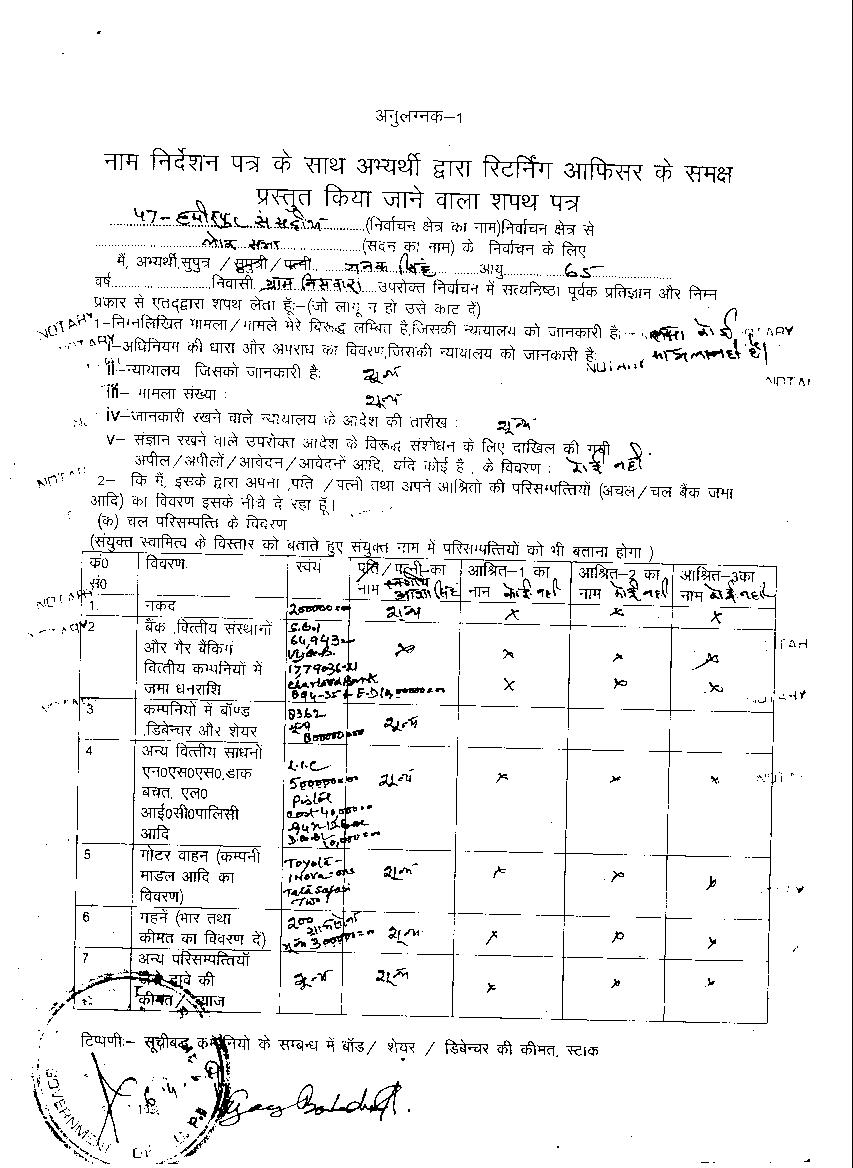 अनुलग्नक–1
नाम निर्देशन पत्र के साथ अभ्यर्थी द्वारा रिटर्निंग आफिसर के समक्ष
प्रस्तुत किया जाने वाला शपथ पत्र
47- हमीरपुर संसदीय (निर्वाचन क्षेत्र का नाम)निर्वाचन क्षेत्र से
लोक सभा (सदन का नाम) के निर्वाचन के लिए
मैं, अभ्यर्थी,सुपुत्र / सुपुत्री / पत्नी सिंह आयु 65
वर्ष निवासी ग्राम उपरोक्त निर्वाचन में सत्यनिष्ठा पूर्वक प्रतिज्ञान और निम्न
प्रकार से एतद्द्वारा शपथ लेता हूँ:–(जो लागू न हो उसे काट दें)
NOTARY 1–निम्नलिखित मामला/मामले मेरे विरूद्ध लम्बित है,जिसकी न्यायालय को जानकारी है:– कोई NOTARY
NOTARY i–अधिनियम की धारा और अपराध का विवरण,जिसकी न्यायालय को जानकारी है: नहीं है।
ii–न्यायालय जिसको जानकारी है: शून्य
iii– मामला संख्या : शून्य
iv–जानकारी रखने वाले न्यायालय के आदेश की तारीख : शून्य
v– संज्ञान रखने वाले उपरोक्त आदेश के विरूद्ध संशोधन के लिए दाखिल की गयी
अपील/अपीलों/आवेदन/आवेदनों आदि, यदि कोई है , के विवरण : कोई नहीं
2– कि मैं, इसके द्वारा अपना ,पति /पत्नी तथा अपने आश्रितो की परिसम्पत्तियों (अचल/चल बैंक जमा
आदि) का विवरण इसके नीचे दे रहा हूँ।
(क) चल परिसम्पत्ति के विवरण
(संयुक्त स्वामित्व के विस्तार को बताते हुए संयुक्त नाम में परिसम्पत्तियों को भी बताना होगा )
क्र0 सं0 विवरण स्वयं पति/पत्नी का नाम आशा सिंह आश्रित–1 का नाम कोई नहीं आश्रित–2 का नाम कोई नहीं आश्रित–3का नाम कोई नहीं
1. नकद शून्य x x x
2 बैंक ,वित्तीय संस्थानों
और गैर बैंकिग
वित्तीय कम्पनियों में
जमा धनराशि
S.B.I
64,943
1779036-21
Chartered Bank
x x x x
3 कम्पनियों में बॉण्ड
,डिबेन्चर और शेयर
8362
शून्य
4 अन्य वित्तीय साधनों
एन0एस0एस0,डाक
बचत, एल0
आई0सी0पालिसी
आदि
L.I.C
Pistol
cost 40,000=00
शून्य x x x
5 मोटर वाहन (कम्पनी
माडल आदि का
विवरण)
Toyota-
Inova-one
Tata Safari
Two
शून्य x x x
6 गहने (भार तथा
कीमत का विवरण दें)
200
300000=00
शून्य x x x
7 अन्य परिसम्पत्तियॉं
जैसे दावे की
कीमत/ब्याज
शून्य शून्य x x x
टिप्पणी:– सूचीबद्ध कम्पनियो के सम्बन्ध में बॉड/ शेयर / डिबेन्चर की कीमत, स्टाक
GOVERNMENT OF U.P.